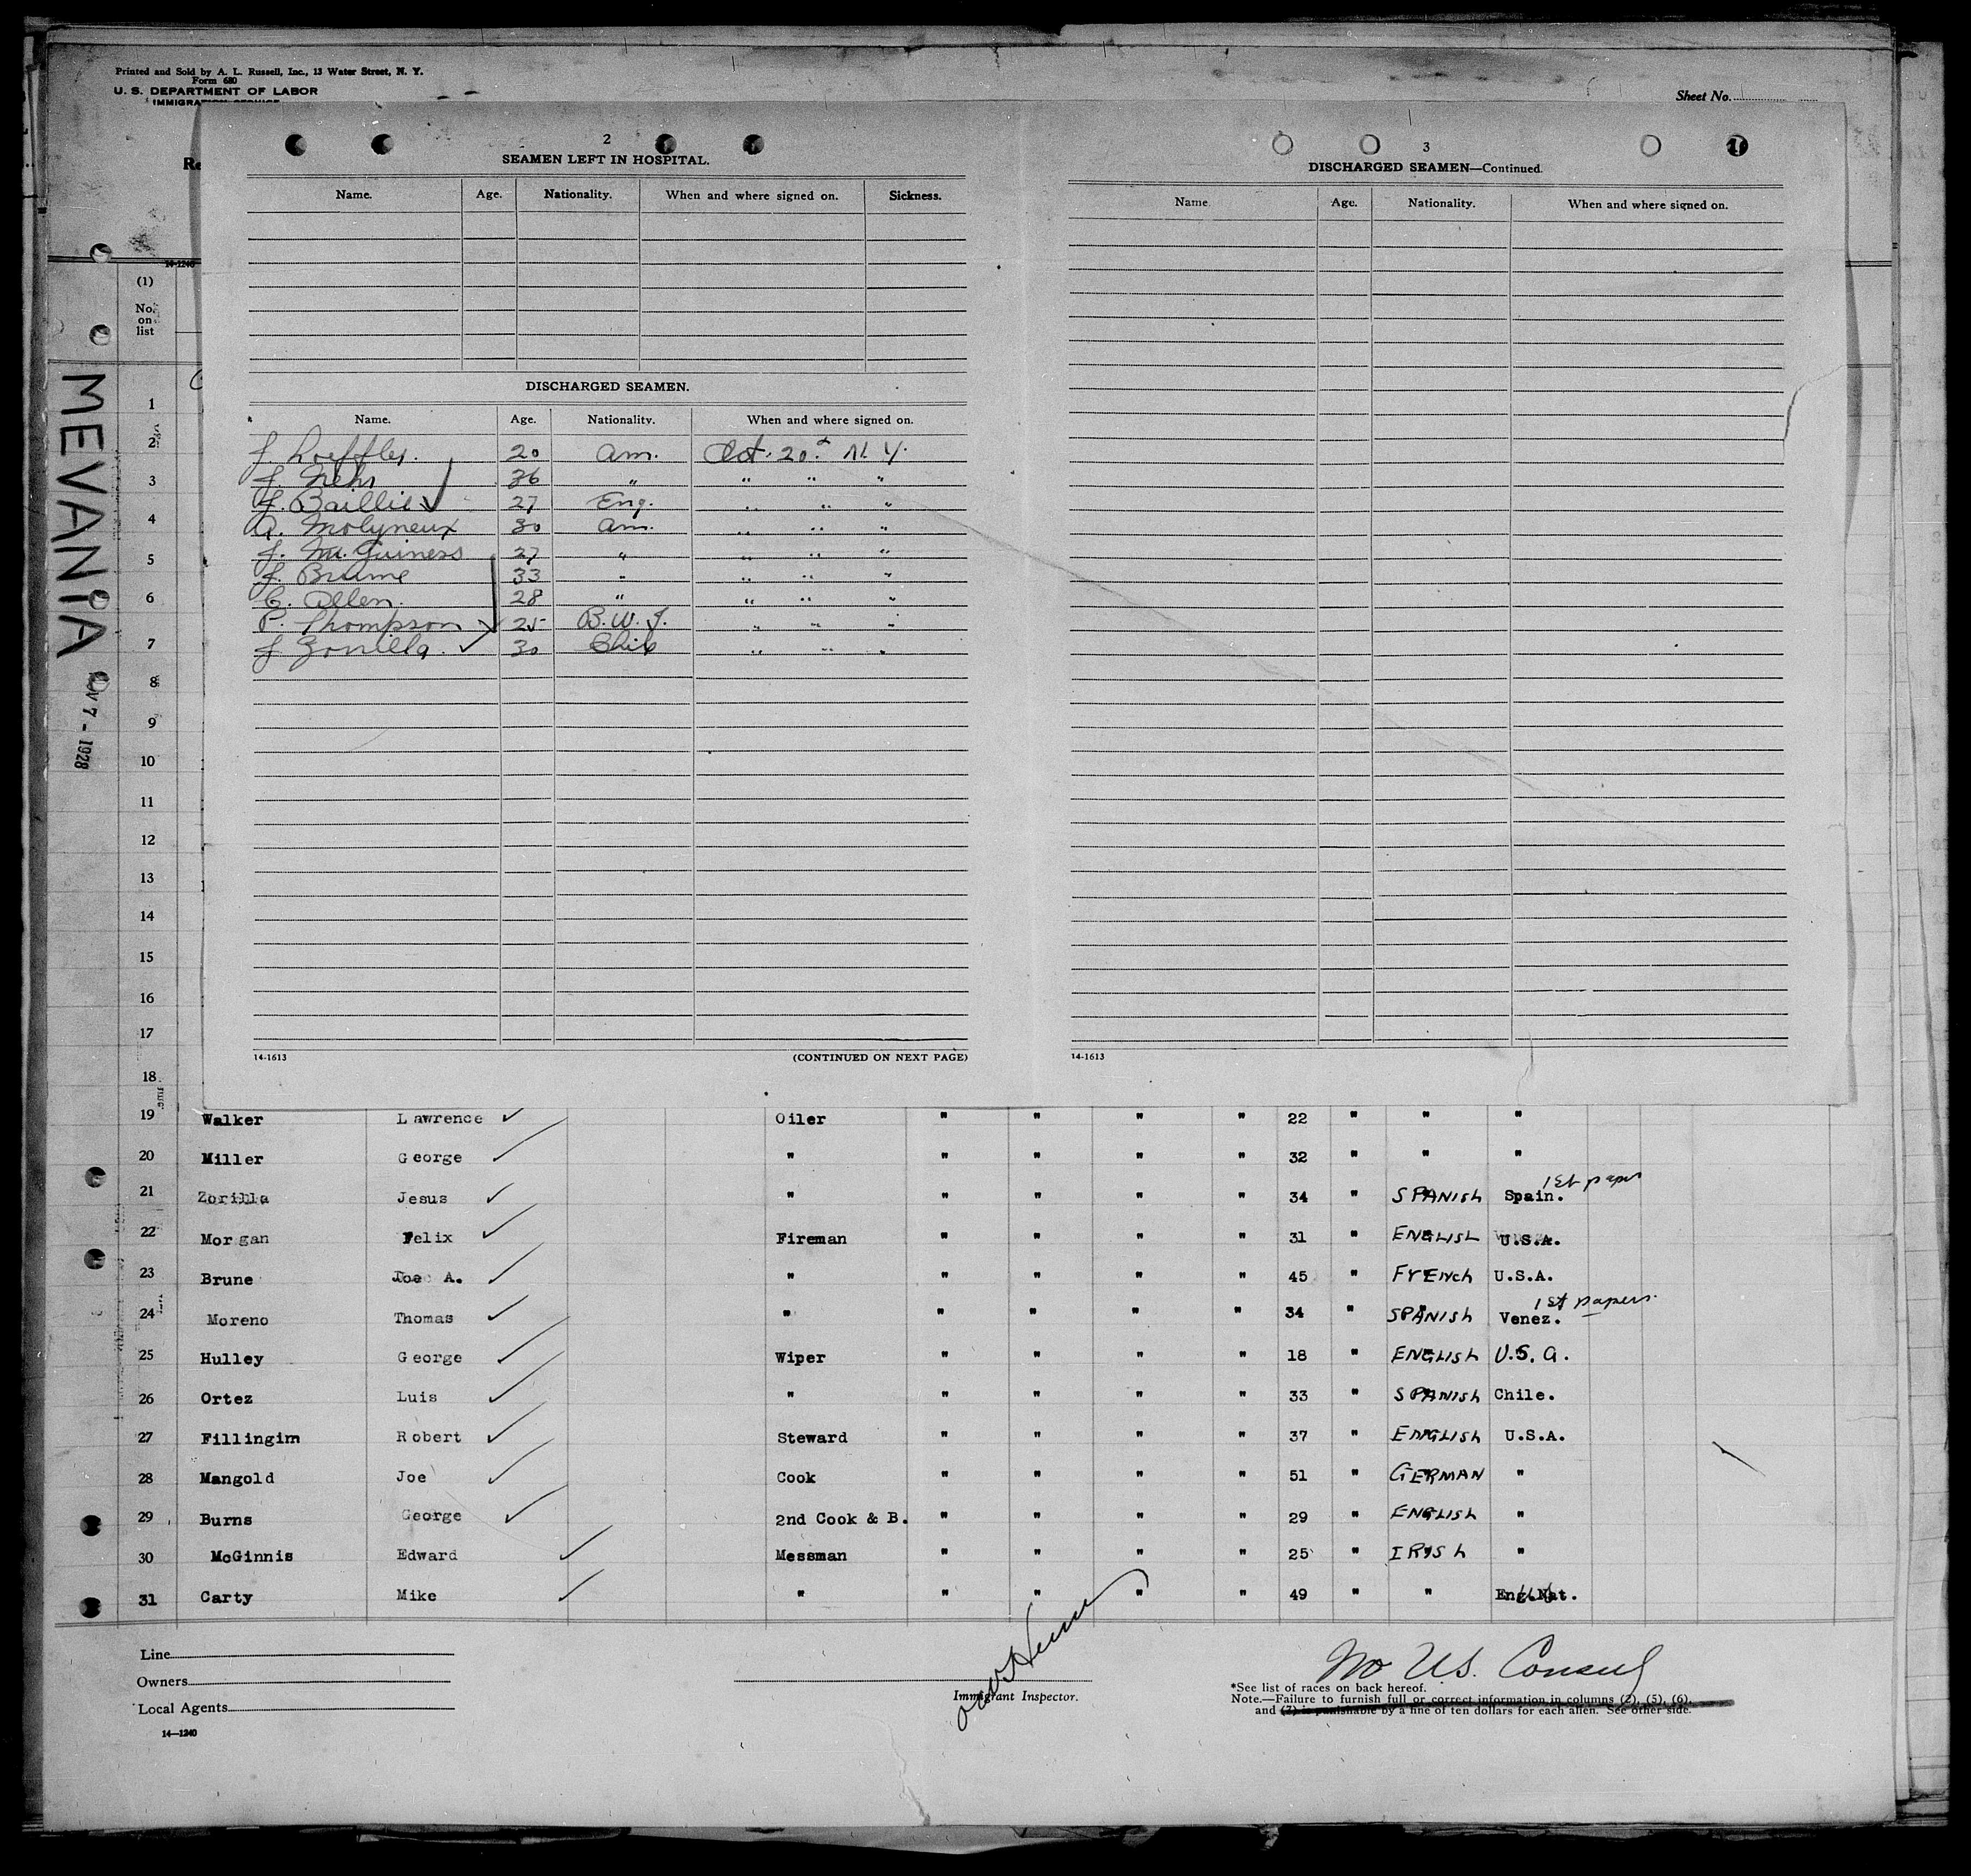 Printed and Sold by A. L. Russell, Inc., 13 Water Street, N. Y.
Form 680
U. S. DEPARTMENT OF LABOR
IMMIGRATION SERVICE
Sheet No.
14-1240
(1)
No. on list
MEVANIA
NOV 7 - 1928
2
SEAMEN LEFT IN HOSPITAL.
Name. Age. Nationality. When and where signed on. Sickness.
DISCHARGED SEAMEN.
Name. Age. Nationality. When and where signed on.
J. Loeffler. 20 Am. Oct. 20. N. Y.
J. 36 " " " "
J. Baillie 27 Eng. " " "
A. Molyneux 30 Am. " " "
J. Mc. Guiness 27 " " " "
J. Brume 33 " " " "
C. Allen. 28 " " " "
P. Thompson 25 B. W. I. " " "
J. Zorrilla. 30 Chile " " "
14-1613
(CONTINUED ON NEXT PAGE)
3
DISCHARGED SEAMEN—Continued.
Name Age. Nationality. When and where signed on.
14-1613
1
2
3
4
5
6
7
8
9
10
11
12
13
14
15
16
17
18
19 Walker Lawrence Oiler " " " " 22 " " "
20 Miller George " " " " " 32 " " "
21 Zorilla Jesus " " " " " 34 " SPANISH Spain. 1st paper
22 Morgan Felix Fireman " " " " 31 " ENGLISH U.S.A.
23 Brune Joe A. " " " " " 45 " FRENCH U.S.A.
24 Moreno Thomas " " " " " 34 " SPANISH Venez. 1st papers.
25 Hulley George Wiper " " " " 18 " ENGLISH U.S.A.
26 Ortez Luis " " " " " 33 " SPANISH Chile.
27 Fillingim Robert Steward " " " " 37 " ENGLISH U.S.A.
28 Mangold Joe Cook " " " " 51 " GERMAN "
29 Burns George 2nd Cook & B. " " " " 29 " ENGLISH "
30 McGinnis Edward Messman " " " " 25 " IRISH "
31 Carty Mike " " " " " 49 " " Eng. Nat.
Line
Owners
Local Agents
14—1240
Immigrant Inspector.
No U.S. Consul
*See list of races on back hereof.
Note.—Failure to furnish full or correct information in columns (2), (5), (6),
and (7) is punishable by a fine of ten dollars for each alien. See other side.